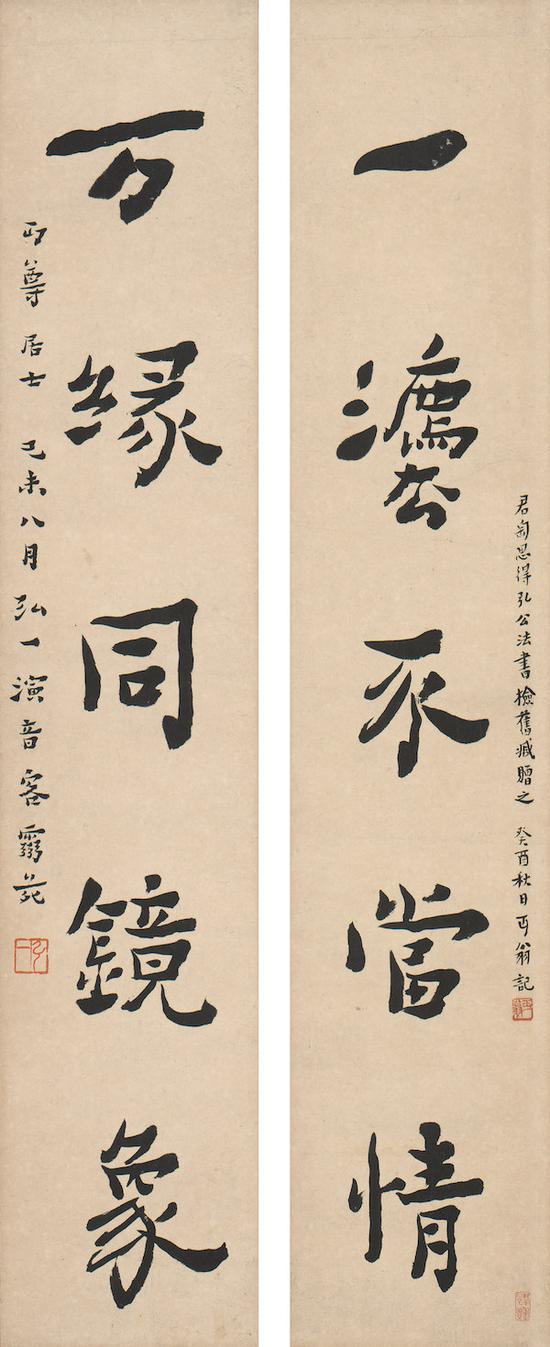 一灋不當情
君匋思得弘公法書檢舊臧贈之 癸酉秋日丏翁記
万縁同鏡象
丏尊居士 己未八月弘一演音客靈苑
弘一